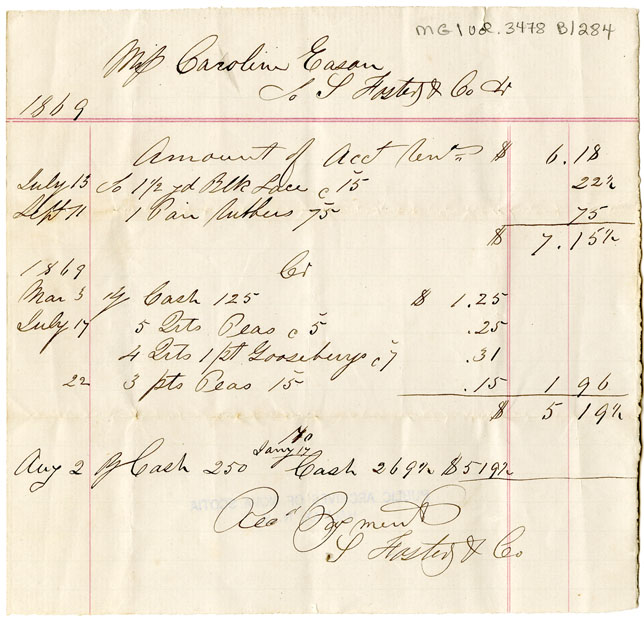 MG 1 vol. 3478 B/284
Miss Caroline Eason
To S Foster & Co Dr
1869
Amount of Acct Ren^d $ 6.18
July 13 To 1 1/2 yd Blk Lace c 15 22 1/2
Sept 11 1 Pair Rubbers 75 75
$ 7.15 1/2
1869 Cr
Mar 3 By Cash 125 $ 1.25
July 17 5 Qrts Peas c 5 .25
4 Qrts 1 pt Gooseberrys c 7 .31
22 3 pts Peas 15 .15 1 96
$ 5 19 1/2
/70
Jany 17
Aug 2 By Cash 250 Cash 269 1/2 $5 19 1/2
Rec^d Payment
S Foster & Co